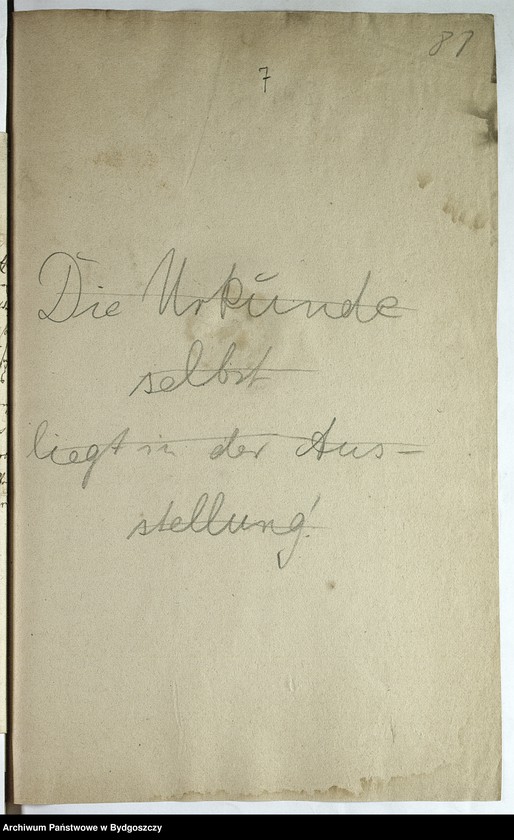 81
7
Die Urkunde
selbst
liegt in der Aus-
stellung!
Archiwum Państwowe w Bydgoszczy